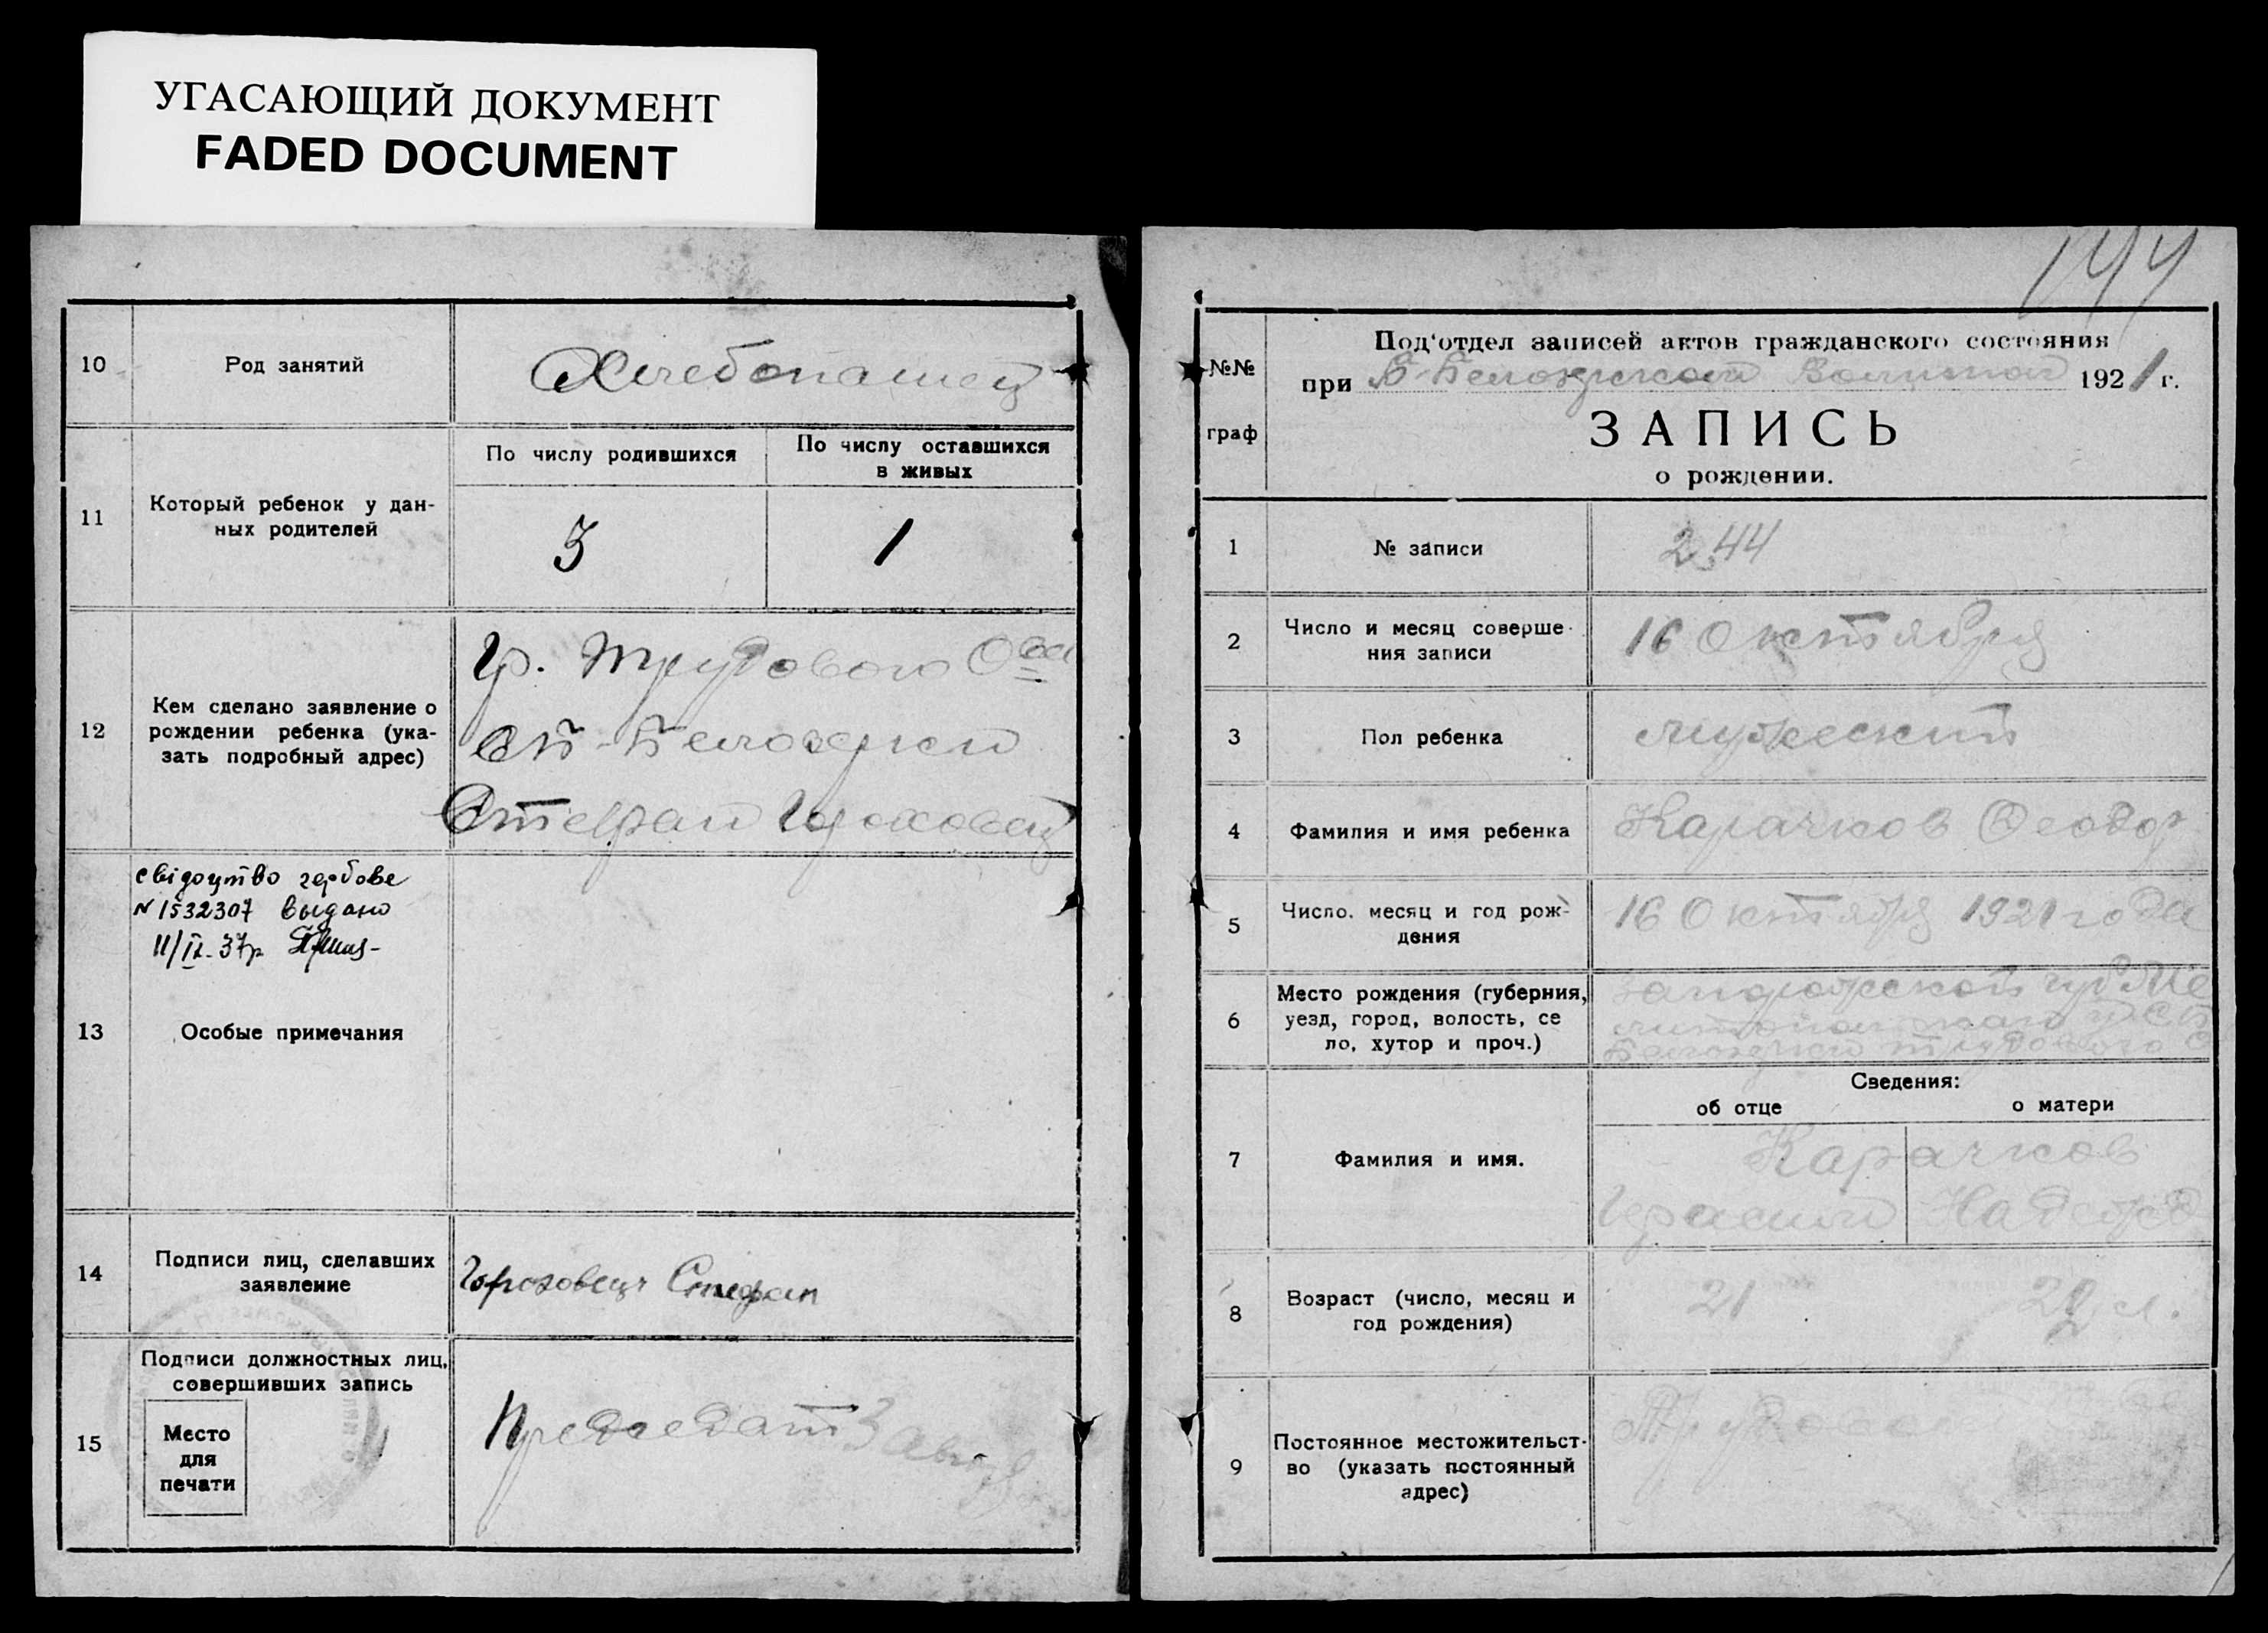 УГАСАЮЩИЙ ДОКУМЕНТ
FADED DOCUMENT
10
Род занятий
Хлебопашец
11
Который ребенок у дан-
ных родителей
По числу родившихся
По числу оставшихся
в живых
3
1
12
Кем сделано заявление о
рождении ребенка (ука-
зать подробный адрес)
Гр. Трудового Ова
Б-Белозерки
Стефан Гороховец
свідоцтво гербове
N 1532307 выдано
11/IX-37р
13
Особые примечания
14
Подписи лиц, сделавших
заявление
Гороховец Стефан
15
Подписи должностных лиц,
совершивших запись
Место
для
печати
Председат
144
№№
граф
Под'отдел записей актов гражданского состояния
при Б-Белозерской Волистой 1921 г.
ЗАПИСЬ
о рождении.
1
№ записи
244
2
Число и месяц соверше-
ния записи
16 Октября
3
Пол ребенка
мужеский
4
Фамилия и имя ребенка
Карачков Феодор
5
Число, месяц и год рож-
дения
16 Октября 1921 года
6
Место рождения (губерния,
уезд, город, волость, се
ло, хутор и проч.)
Запорожской губ Ме
литопол
Белозерки трудового
Сведения:
об отце
о матери
7
Фамилия и имя.
Карачков
Герасим
Надежда
8
Возраст (число, месяц и
год рождения)
21
22 л.
9
Постоянное местожительст-
во (указать постоянный
адрес)